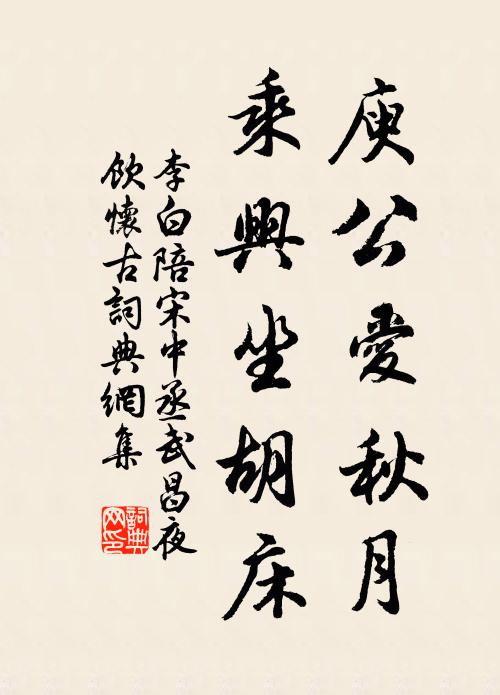 庾公愛秋月
乘興坐胡床
李白陪宋中丞武昌夜
飲懷古詞典網集
詞典
网印